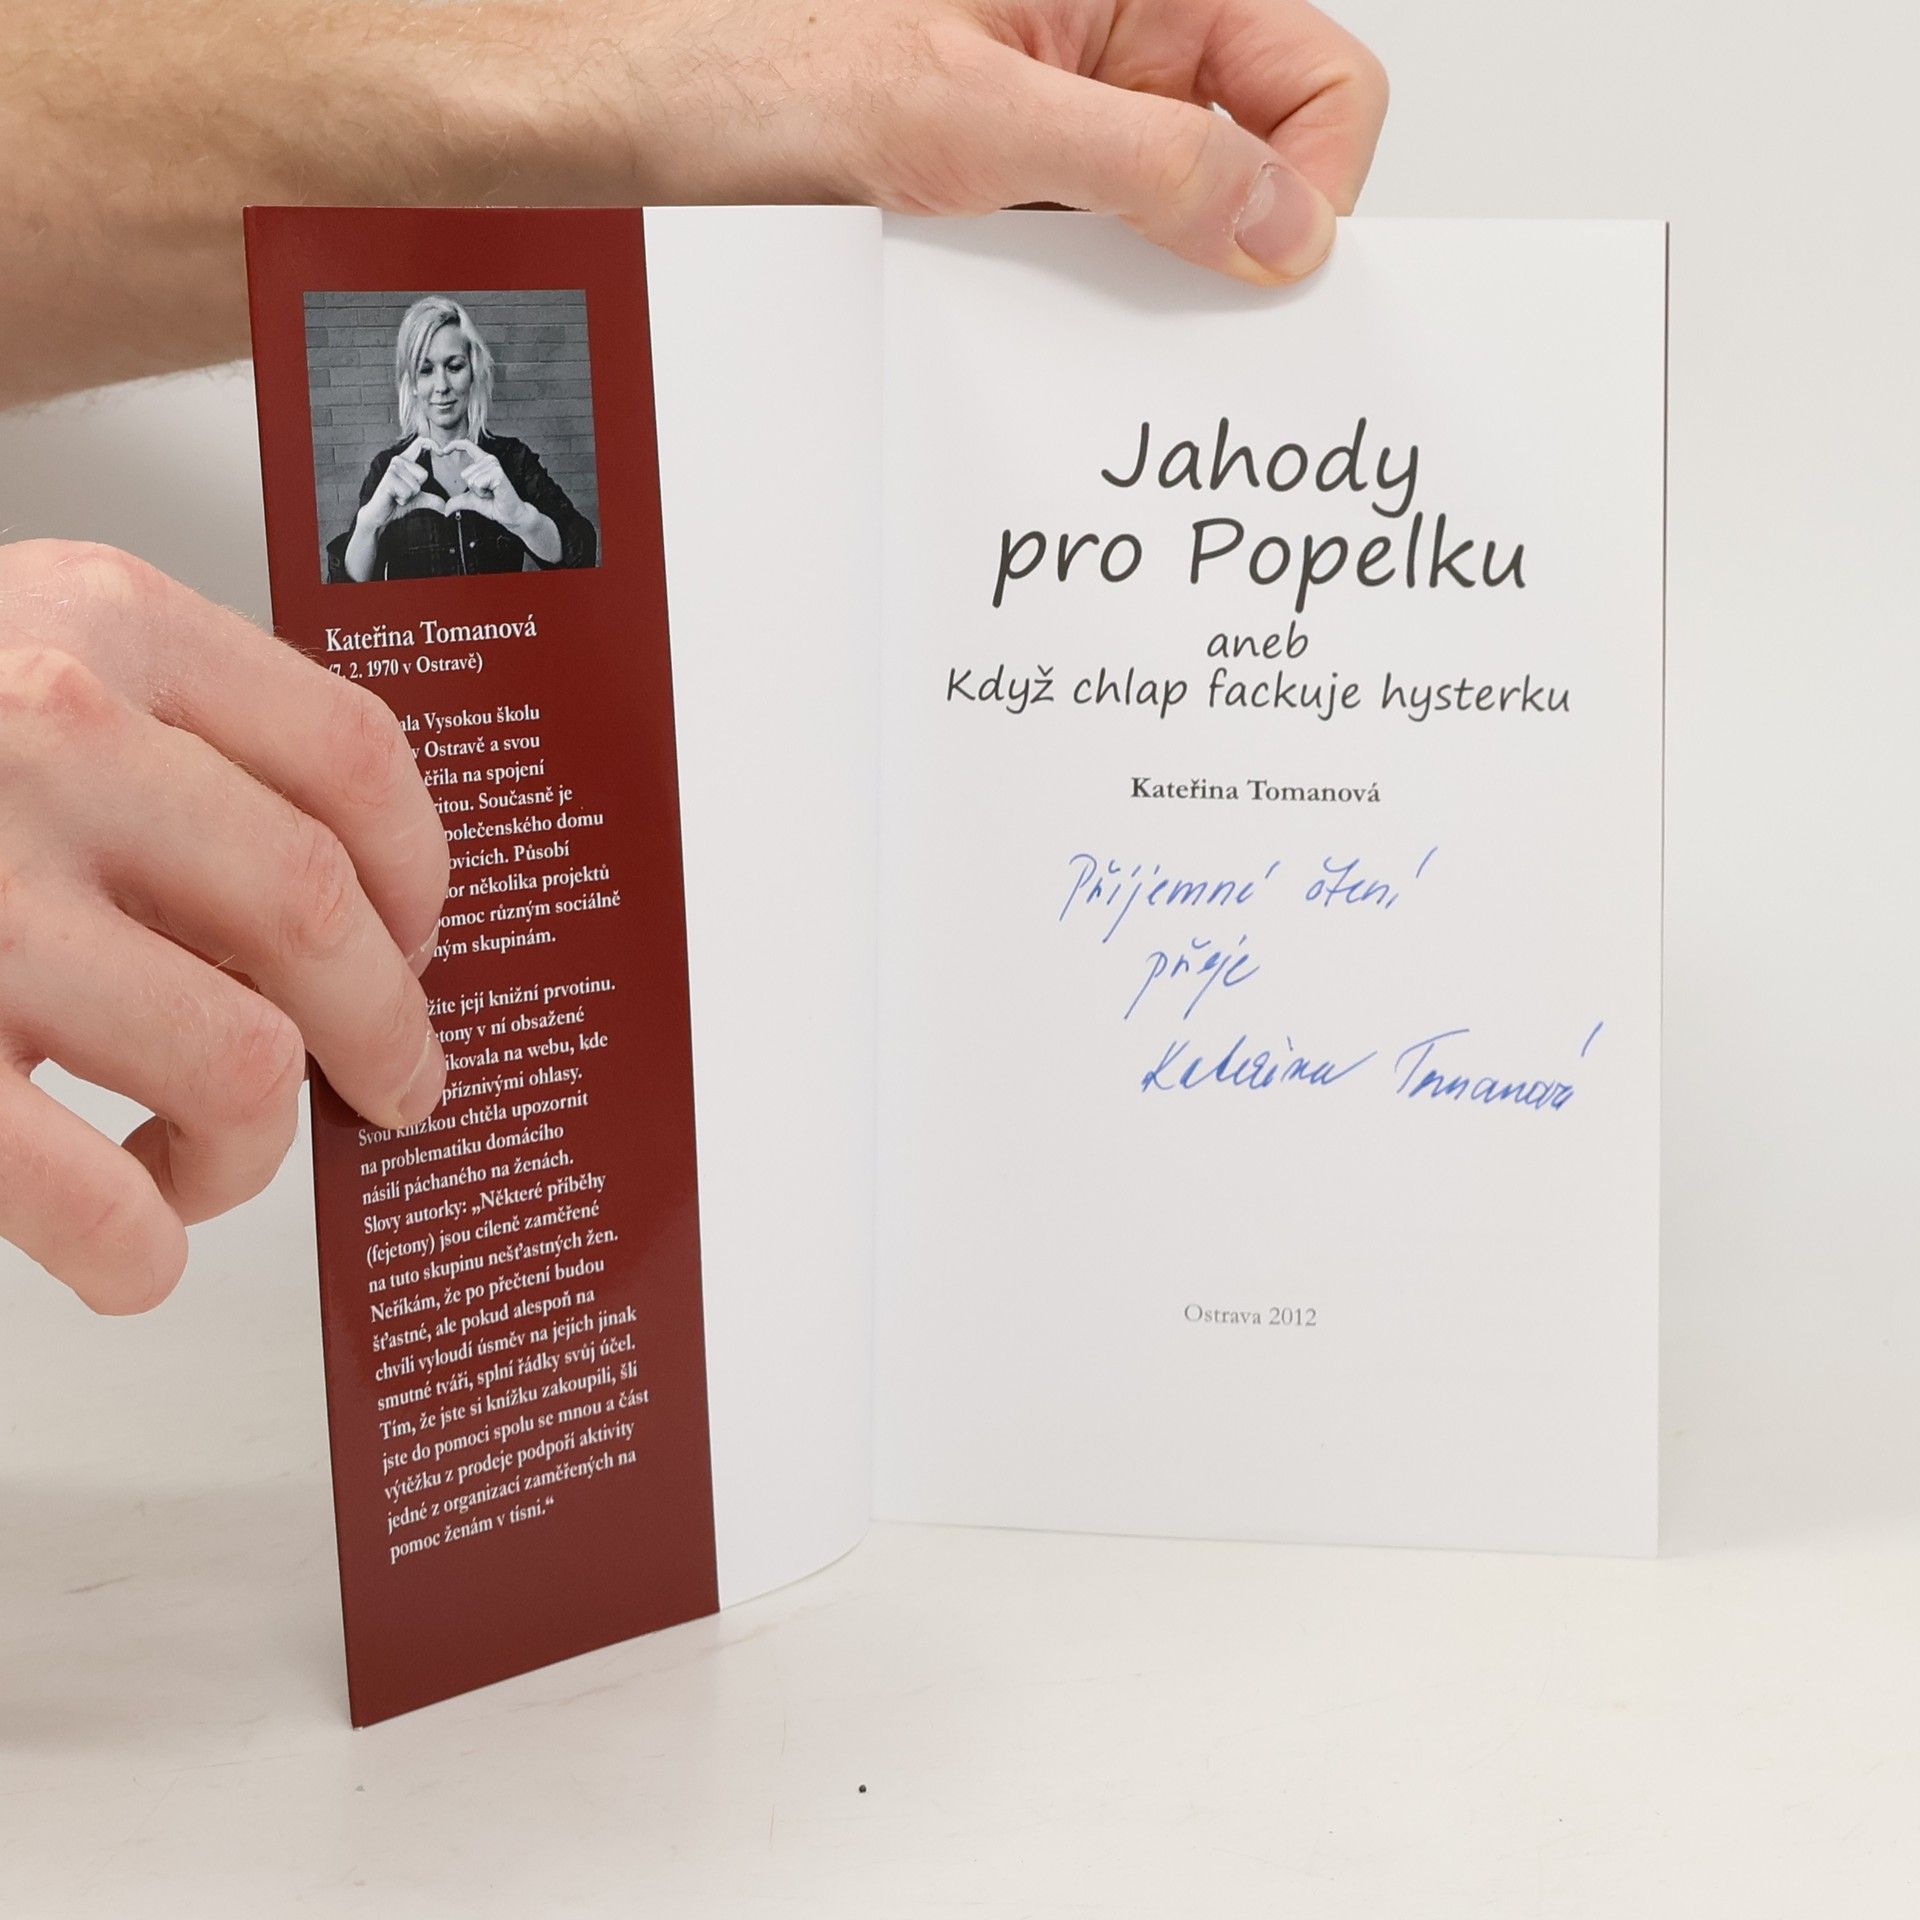 Kateřina Tomanová
2. 1970 v Ostravě)
Vysokou školu
v Ostravě a svou
na spojení
Současně je
domu
Působí
několika projektů
různým sociálně
skupinám.
její knižní prvotinu.
v ní obsažené
na webu, kde
příznivými ohlasy.
Svou knížkou chtěla upozornit
na problematiku domácího
násilí páchaného na ženách.
Slovy autorky: „Některé příběhy
(fejetony) jsou cíleně zaměřené
na tuto skupinu nešťastných žen.
Neříkám, že po přečtení budou
šťastné, ale pokud alespoň na
chvíli vyloudí úsměv na jejich jinak
smutné tváři, splní řádky svůj účel.
Tím, že jste si knížku zakoupili, šli
jste do pomoci spolu se mnou a část
výtěžku z prodeje podpoří aktivity
jedné z organizací zaměřených na
pomoc ženám v tísni.“
Jahody
pro Popelku
aneb
Když chlap fackuje hysterku
Kateřina Tomanová
Příjemné čtení
přeje
Kateřina Tomanová
Ostrava 2012